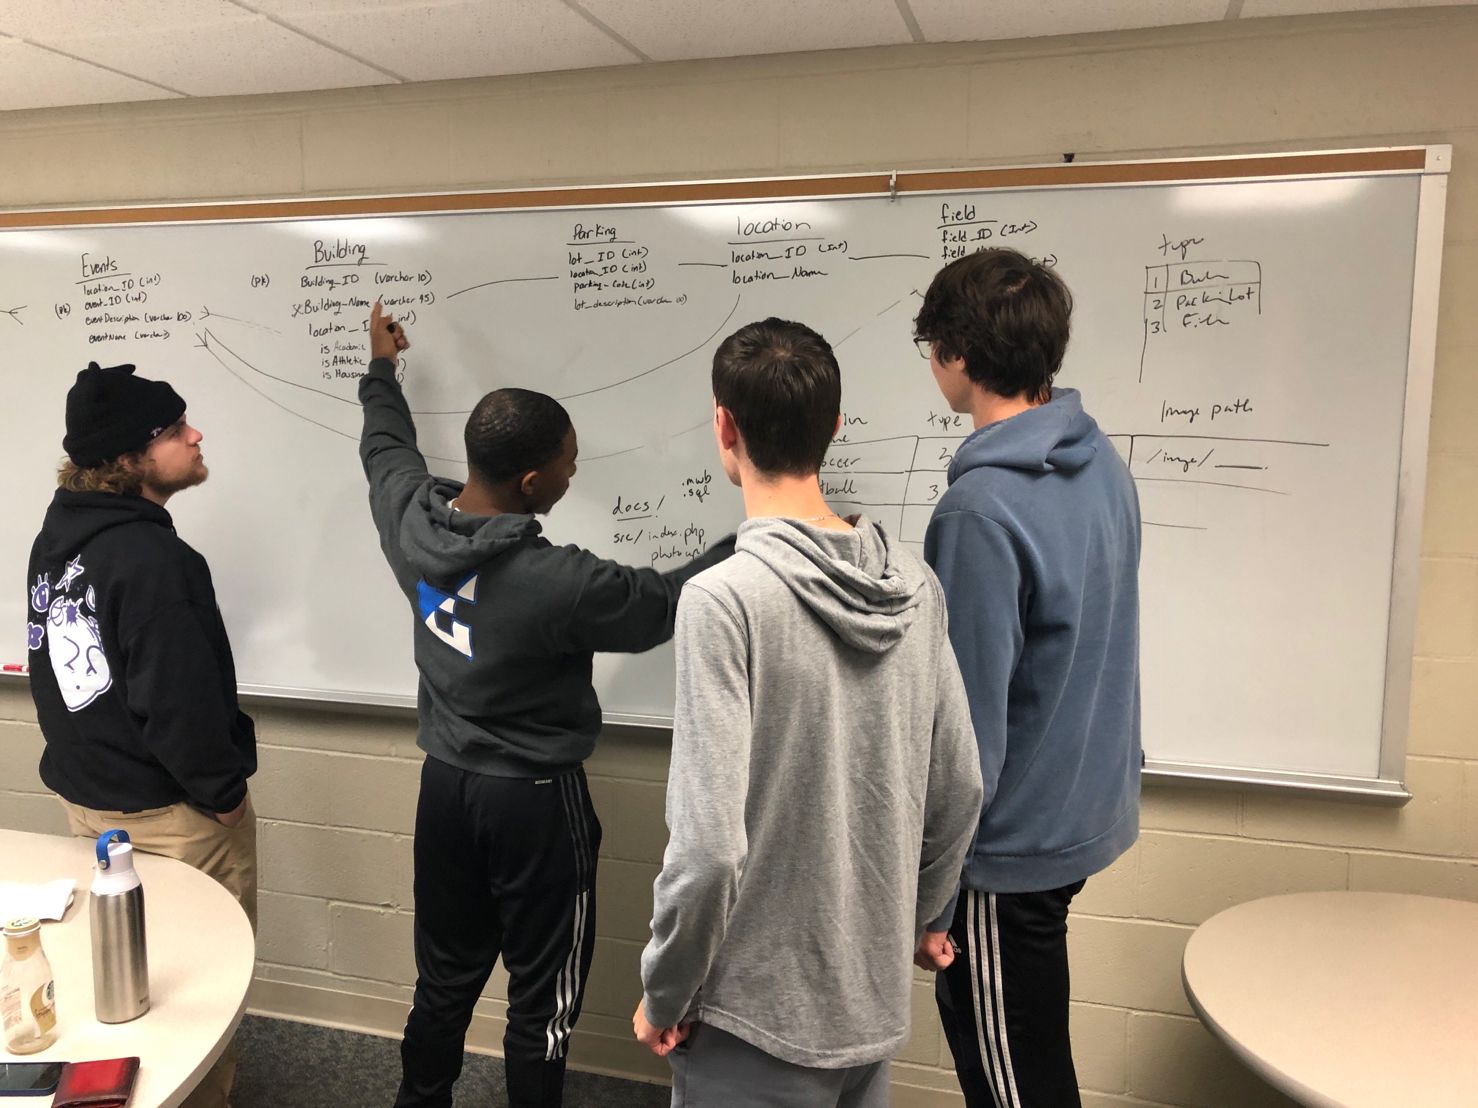 Events
location_ID (int)
event_ID (int)
(PK)
eventDescription (varchar 100)
eventName (varchar)
(PK)
Building
Building_ID (varchar 10)
x Building_Name (varchar 45)
location_I int)
is Academic
is Athletic 1)
is Housing 1)
Parking
lot_ID (int)
location_ID (int)
parking-Code (int)
lot_description (varchar
location
location_ID (Int)
location_Name
field
field_ID (Int)
field
type
1
2 Parkin Lot
3
type
Image path
occer 3 /image/ ___.
tball 3
docs/
.mwb
.sql
src/ index.php